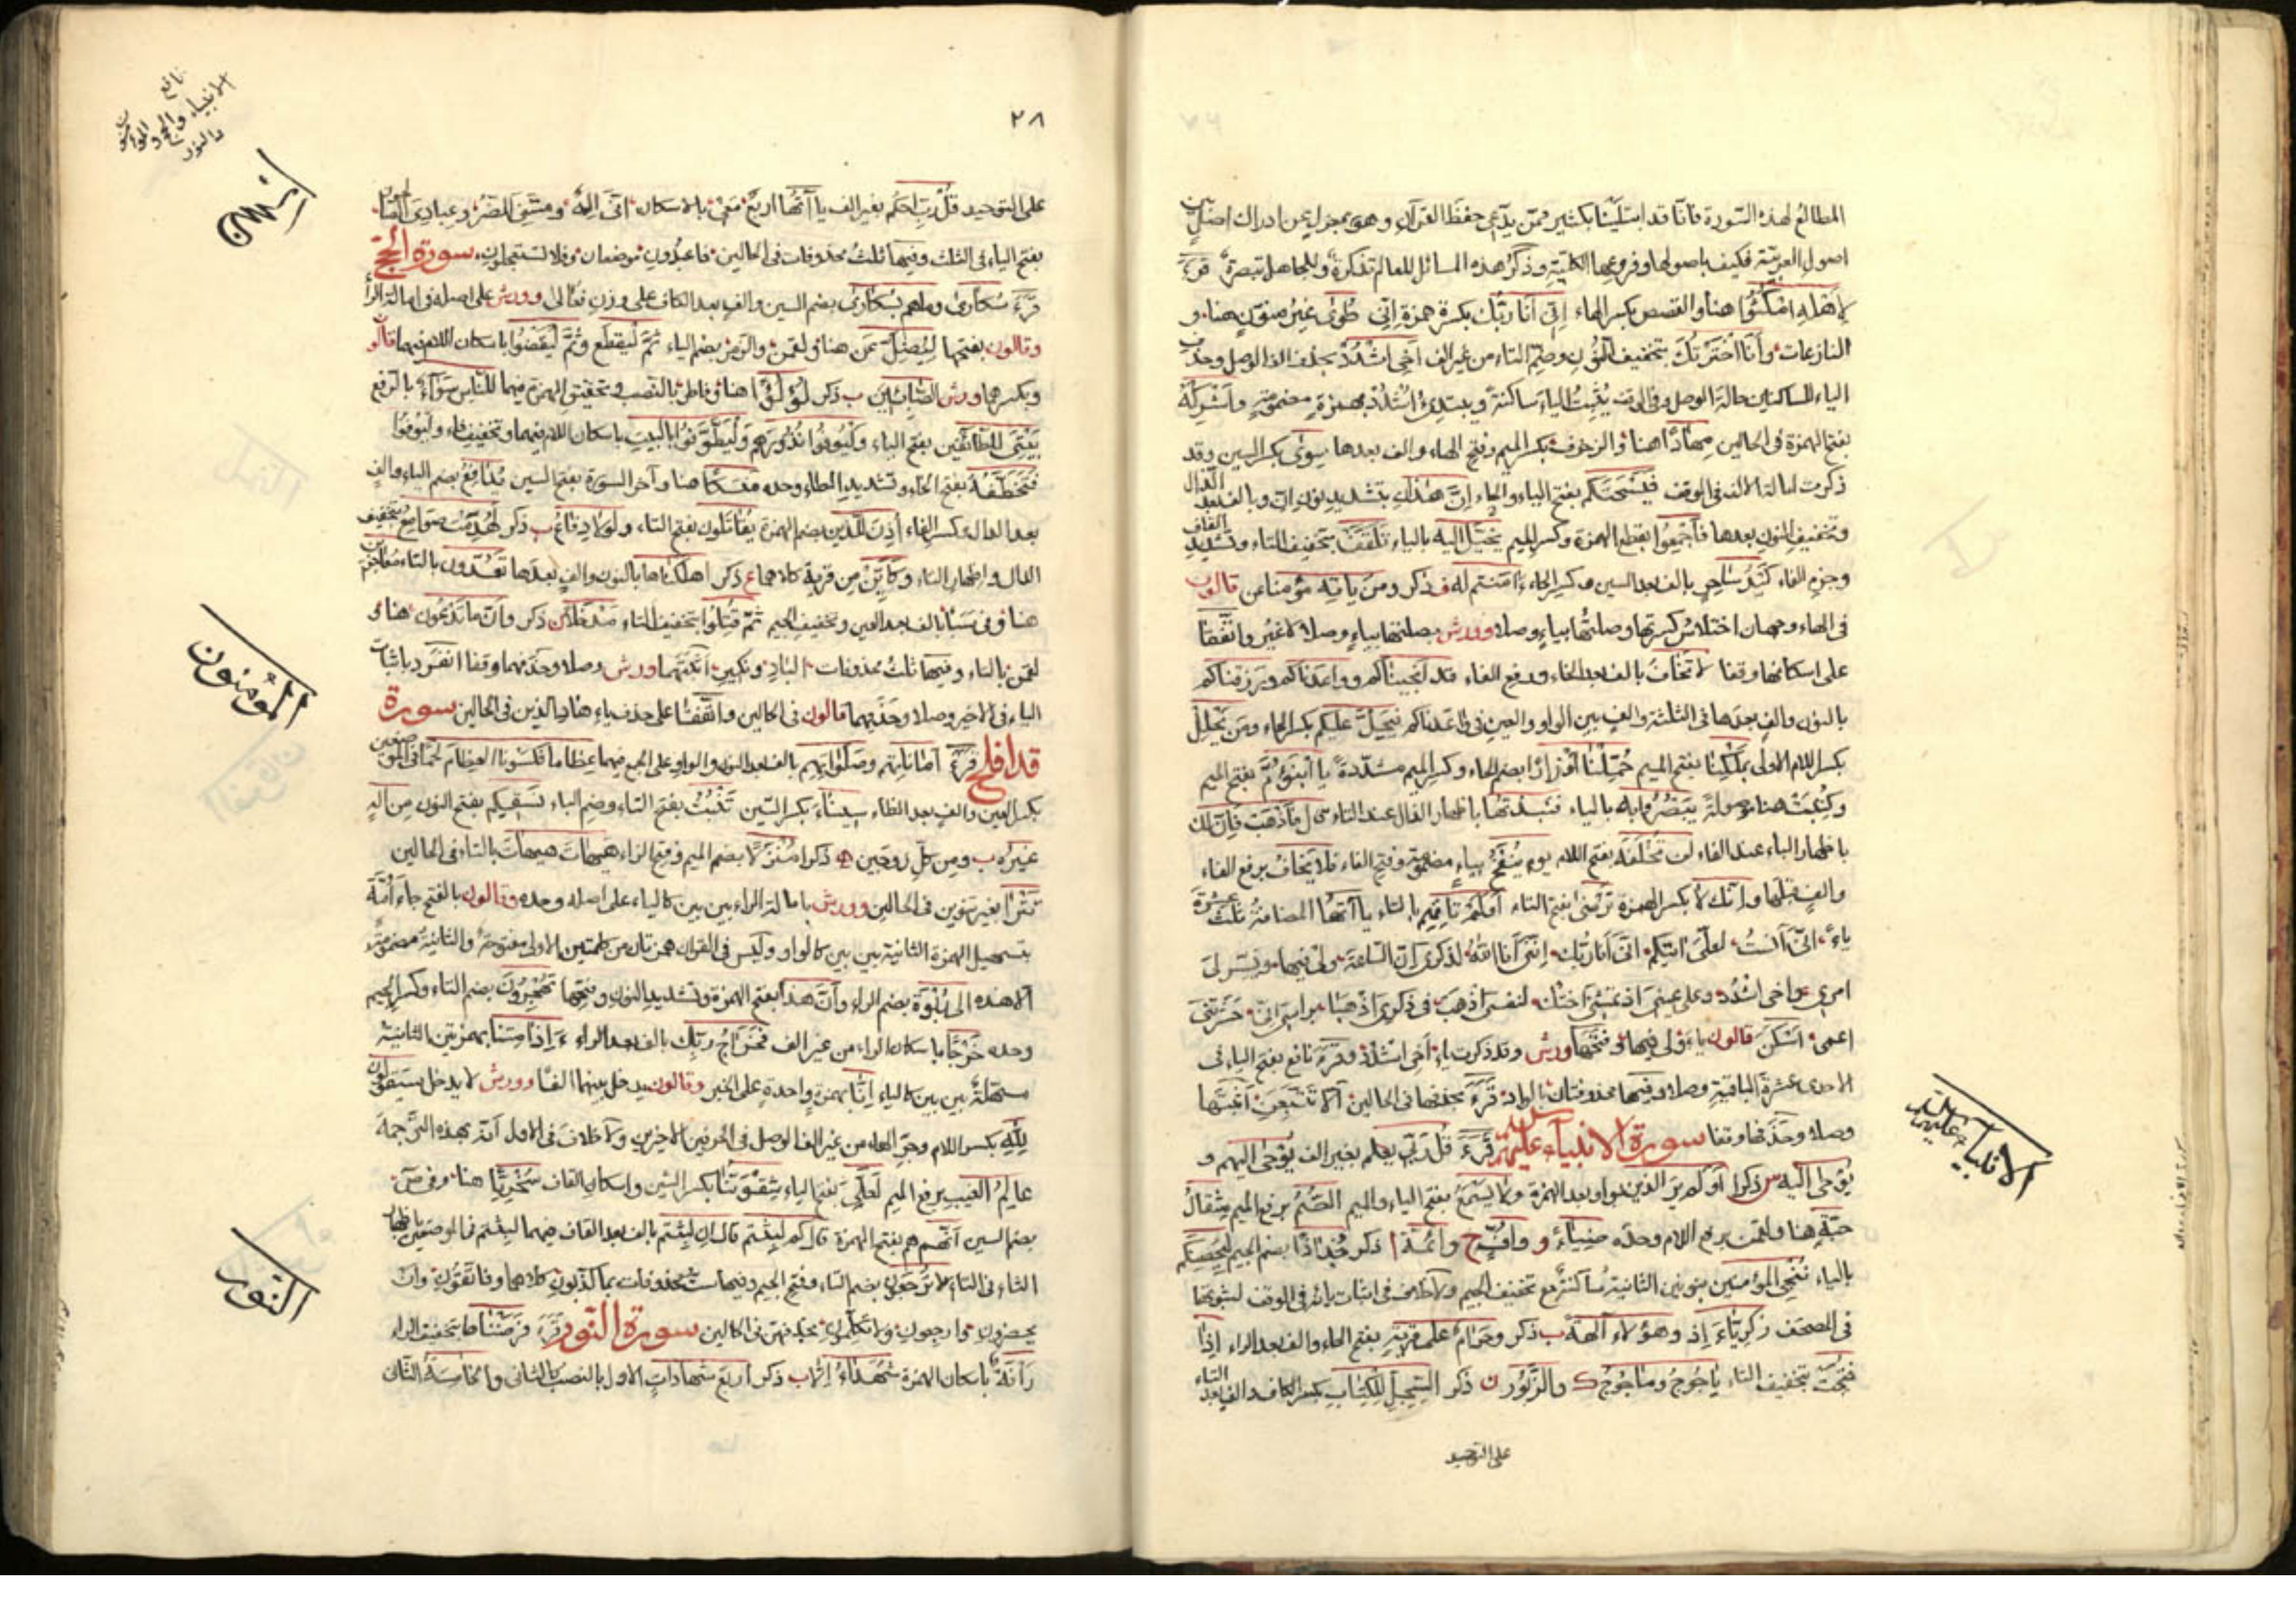 المطالع لهذه السورة فانا قد ابتلينا بكثير ممن يدعى حفظ القرآن وهو بمعزل عن ادراك اصل من
اصول العربية فكيف باصولها وفروعها الكلية وذكر هذه المسائل للعالم تذكرة وللجاهل تبصرة قرء
لاهله امكثوا هنا والقصص بكسر الهاء اني انا ربك بكسرة همزة اني طوى غير منون هنا و
النازعات وانا اخترتك بتخفيف النون وضم التاء من غير الف اخي اشدد بحذف الف الوصل وحذف
الياء للساكنين حالة الوصل وفي الوقف يثبت الياء ساكنة ويبتدئ اشدد بهمزة مضمومة واشركه
بفتح الهمزة في الحالين مهادا هنا والزخرف بكسر الميم وفتح الهاء والف بعدها سوى بكسر السين وقد
ذكرت امالة الالف في الوقف فيسحتكم بفتح الياء والحاء ان هذان بتشديد نون ان وبالف بعد الذال
وتخفيف النون بعدها فاجمعوا بقطع الهمزة وكسر الميم يخيل اليه بالياء تلقف بتخفيف التاء وتشديد القاف
وجزم الفاء كيد ساحر بالف بعد السين وكسر الحاء ءامنتم له ف ذكر ومن ياته مؤمنا عن قالون
في الهاء وجهان اختلاس كسرتها وصلتها بياء وصلا وورش بصلتها بياء وصلا لا غير واتفقا
على اسكانها وقفا لا تخاف بالف بعد الخاء ورفع الفاء قد انجيناكم وواعدناكم ورزقناكم
بالنون والف بعدها في الثلثة والف بين الواو والعين في واعدناكم فيحل عليكم بكسر الحاء ومن يحلل
بكسر اللام الاولى بملكنا بفتح الميم حملنا اوزارا بضم الحاء وكسر الميم مشددة يا ابنؤم بفتح الميم
وكتبت هنا موصولة يبصروا به بالياء فنبذتها باظهار الذال عند التاء قال فاذهب فان لك
باظهار الباء عند الفاء لن تخلفه بفتح اللام يوم ينفخ بياء مضمومة وفتح الفاء فلا يخاف برفع الفاء
والف قبلها وانك لا بكسر الهمزة ترضى بفتح التاء اولم تاتهم بالتاء يا آتها المضافة ثلث عشرة
ياء انى آنست لعلى اتيكم انى انا ربك اننى انا الله لذكرى ان الساعة ولى فيها ويسر لى
امرى واخى اشدد وعلى عينى اذ تمشى اختك لنفسى اذهب فى ذكرى اذهبا براسى انى حشرتنى
اعمى اسكن قالون ياء ولى فيها وفتحها ورش وقد ذكرت ياء اخى اشدد وقرء نافع بفتح الياء فى
الاحدى عشرة الباقية وصلا وفيها محذوفتان بالواد قرء بحذفها فى الحالين الا تتبعن اثبتها
وصلا وحذفها وقفا سورة الانبياء عليهم السلام قرء قل ربى يعلم بغير الف يوحى اليهم و
يوحى اليه س ذكرا اولم ير الذين بواو بعد الهمزة ولا يسمع بفتح الياء والميم الصم برفع الميم مثقال
حبة هنا ولقمن برفع اللام وحده ضياء و واف ح وائمة ا ذكر جذاذا بضم الجيم ليحصنكم
بالياء ننجى المؤمنين بنونين الثانية ساكنة مع تخفيف الجيم ولا خلاف فى اثبات يائه فى الوقف لثبوتها
فى المصحف زكرياء اذ وهؤلاء آلهة ب ذكر وحرام على قرية بفتح الحاء والف بعد الراء اذا
فتحت بتخفيف التاء ياجوج وماجوج ك والزبور ن ذكر السجل للكتاب بكسر الكاف والف بعد التاء
على التوحيد
الانبياء عليهم السلام
٢٨
نافع
الانبياء والحج والمؤمنون
والنور
على التوحيد قل رب احكم بغير الف يا آتها اربع معى بالاسكان انى اله ومسنى الضر وعبادى الصالحون
بفتح الياء فى الثلث وفيها ثلث محذوفات فى الحالين فاعبدون موضعان وفلا تستعجلون سورة الحج
قرء سكارى وما هم بسكارى بضم السين والف بعد الكاف على وزن فعالى وورش على اصله فى امالة الراء
وقالون بفتحها ليضل عن هنا ولقمن والزمر بضم الياء ثم ليقطع وثم ليقضوا باسكان اللام فيهما قالون
وبكسرهما ورش الصابئين ب ذكر لؤلؤا هنا وفاطر بالنصب وتحقيق الهمزة فيهما للناس سواء بالرفع
بيتى للطائفين بفتح الياء وليوفوا نذورهم وليطوفوا بالبيت باسكان اللام فيهما وتخفيف فاء وليوفوا
فتخطفه بفتح الخاء وتشديد الطاء وحده منسكا هنا وآخر السورة بفتح السين يدافع بضم الياء والف
بعد الدال وكسر الفاء اذن للذين بضم الهمزة يقاتلون بفتح التاء ولولا دفاع ب ذكر لهدمت صوامع بتخفيف
الدال واظهار التاء وكاين من قرية كلاهما ع ذكر اهلكناها بالنون والف بعدها تعدون بالتاء معاجزين
هنا وفى سبأ بالف بعد العين وتخفيف الجيم ثم قتلوا بتخفيف التاء مدخلا ن ذكر وان ما تدعون هنا و
لقمن بالتاء وفيها ثلث محذوفات الباد ونكير اثبتهما ورش وصلا وحذفهما وقفا انفرد باثبات
الياء فى الاخير وصلا وحذفهما قالون فى الحالين واتفقا على حذف ياء هاد الذين فى الحالين سورة
قد افلح قرء اماناتهم وصلواتهم بالف بعد النون والواو على الجمع فيهما عظاما فكسونا العظام لحما فى الموضعين
بكسر العين والف بعد الظاء سيناء بكسر السين تنبت بفتح التاء وضم الباء نسقيكم بفتح النون من اله
غيره ب ومن كل زوجين ه ذكرا منزلا بضم الميم وفتح الزاء هيهات هيهات بالتاء فى الحالين
تترا بغير تنوين فى الحالين وورش بامالة الراء بين بين كالياء على اصله وحده وقالون بالفتح جاء امة
بتسهيل الهمزة الثانية بين بين كالواو وليس فى القرآن همزتان من كلمتين الاولى مفتوحة والثانية مضمومة
الا هذه الى ربوة بضم الراء وان هذه بفتح الهمزة وتشديد النون وفتحها تهجرون بضم التاء وكسر الجيم
وحده خرجا باسكان الراء من غير الف فخراج ربك بالف بعد الراء ءاذا متنا بهمزتين الثانية
مسهلة بين بين كالياء انا بهمزة واحدة على الخبر وقالون يدخل بينهما الفا وورش لا يدخل سيقولون
لله بكسر اللام وجر الهاء من غير الف الوصل فى الحرفين الاخيرين ولا خلاف فى الاول انه بهذه الترجمة
عالم الغيب برفع الميم لعلى بفتح الياء شقوتنا بكسر الشين واسكان القاف سخريا هنا وفى ص
بضم السين انهم هم بفتح الهمزة قال كم لبثتم قال ان لبثتم بالف بعد القاف فيهما لبثتم فى الموضعين باظهار
الثاء فى التاء لا ترجعون بضم التاء وفتح الجيم وفيها ست محذوفات بما كذبون كلاهما وفاتقون وان
يحضرون وارجعون ولا تكلمون بحذفهن فى الحالين سورة النور قرء فرضناها بتخفيف الراء
رأفة باسكان الهمزة شهداء الا ب ذكر اربع شهادات الاول بالنصب كالثانى والخامسة الثانى
المؤمنون
النور